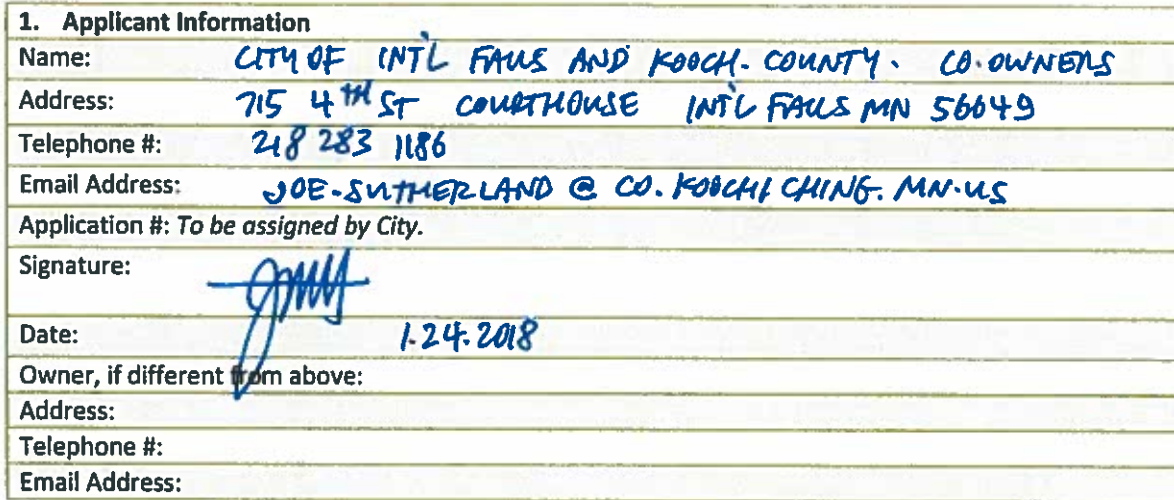 1. Applicant Information
Name: CITY OF INT'L FALLS AND KOOCH. COUNTY. CO-OWNERS
Address: 715 4TH ST COURTHOUSE INT'L FALLS MN 56649
Telephone #: 218 283 1186
Email Address: JOE.SUTHERLAND @ CO.KOOCHICHING.MN.US
Application #: To be assigned by City.
Signature:
Date: 1.24.2018
Owner, if different from above:
Address:
Telephone #:
Email Address: